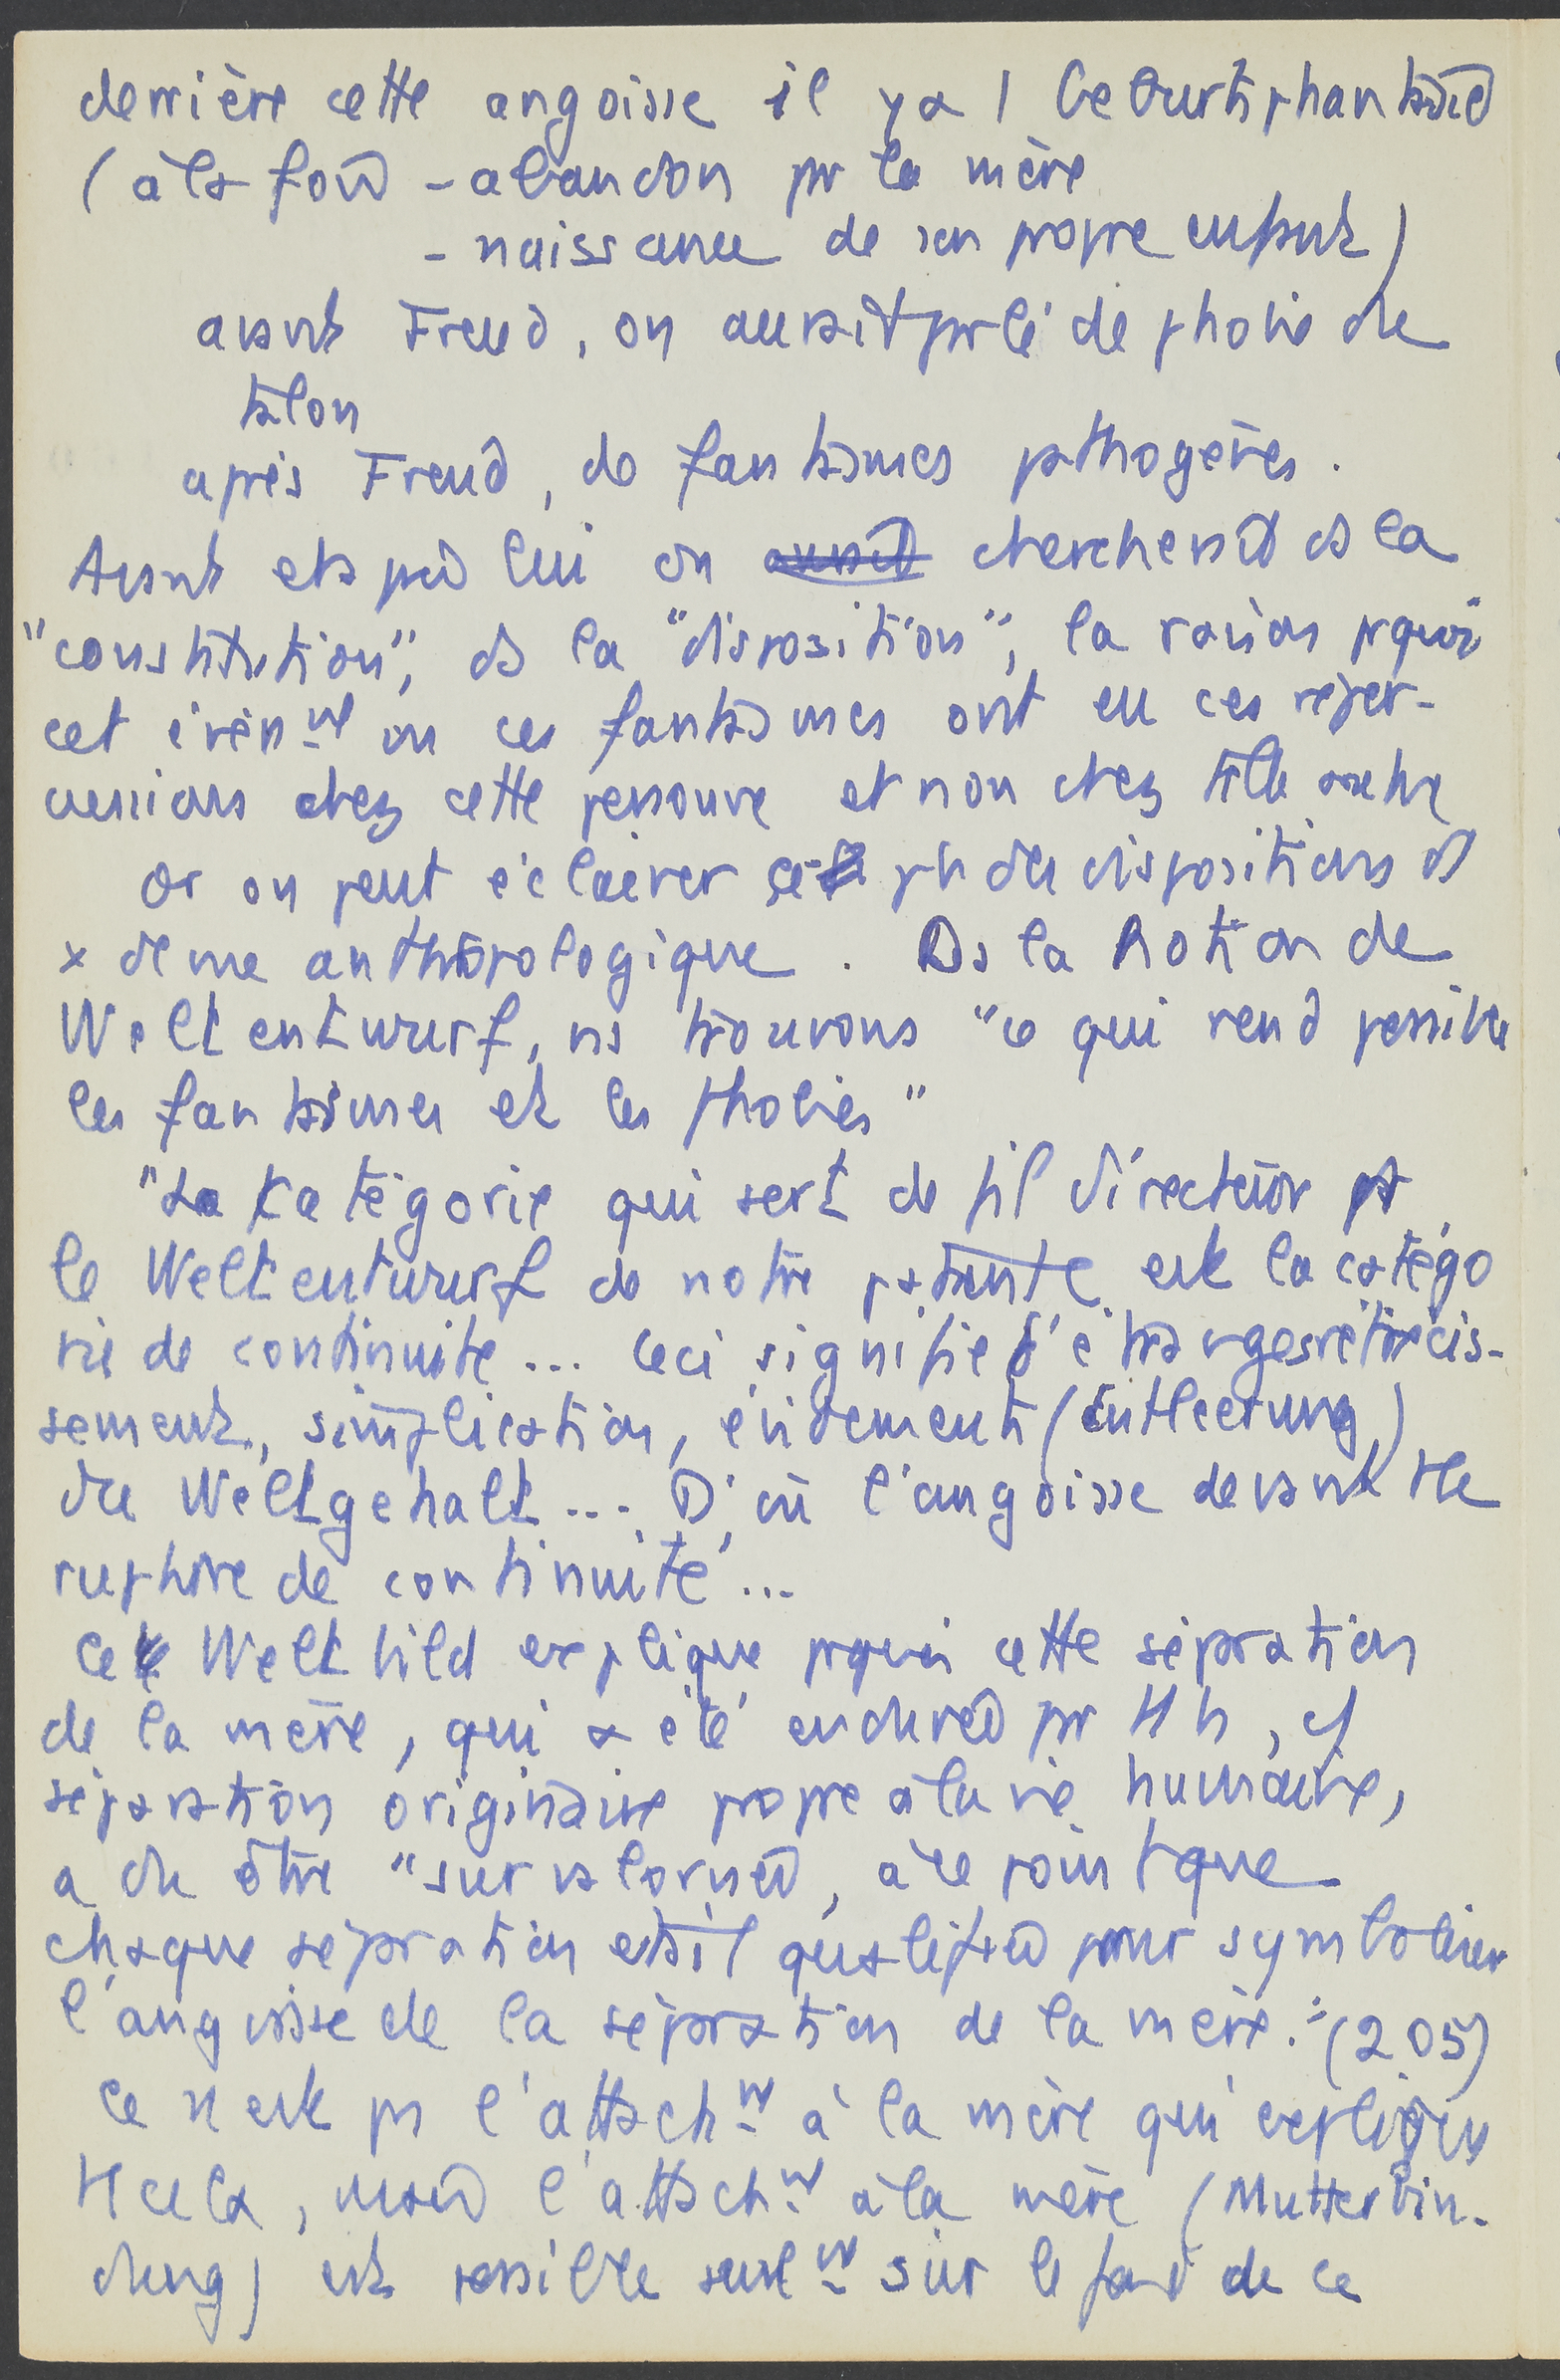 derrière cette angoisse il y a 1 Geburtsphantasie
(à la fois - abandon pr la mère
- naissance de son propre enfant)
avant Freud, on aurait parlé de phobie de
talon
après Freud, de fantasmes pathogènes.
Avant et après lui on aurait chercherait ds la
"constitution", ds la "disposition", la raison pquoi
cet évènmt ou ces fantasmes ont eu ces réper-
cussions chez cette personne et non chez telle autre
Or on peut éclairer ce pb des dispositions ds
x anthropologique. Ds la notion de
Weltentwurf, ns trouvons "ce qui rend possible
les fantasmes et les phobies"
"La Katégorie qui sert de fil directeur pr
le Weltentwurf de notre patiente est la catégo
rie de continuité... Ceci signifie d'étranges rétrécis-
sements, simplication, évidements (Entleerung)
du Weltgehalt... D'où l'angoisse devant tte
rupture de continuité...
Ce Weltbild explique pquoi cette séparation
de la mère, qui a été endurée pr tt h, cf
séparation originaire propre à la vie humaine,
a du être "survalorisée, à ce point que
chaque séparation était qualifiée pour symboliser
l'angoisse de la séparation de la mère." (205)
Ce n'est pas l'attachmt à la mère qui explique
tt cela, mais l'attachmt à la mère (Mutterbin-
dung) est possible seulmt sur le fond de ce